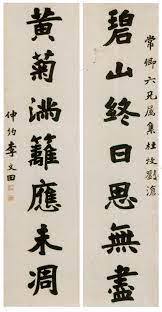 常卿六兄屬集杜牧劉滄
碧山終日思無盡
黃菊滿籬應未凋
仲約李文田